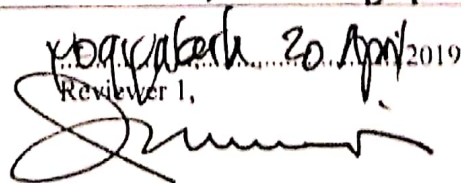 Yogyakarta, 20 April 2019
Reviewer 1,